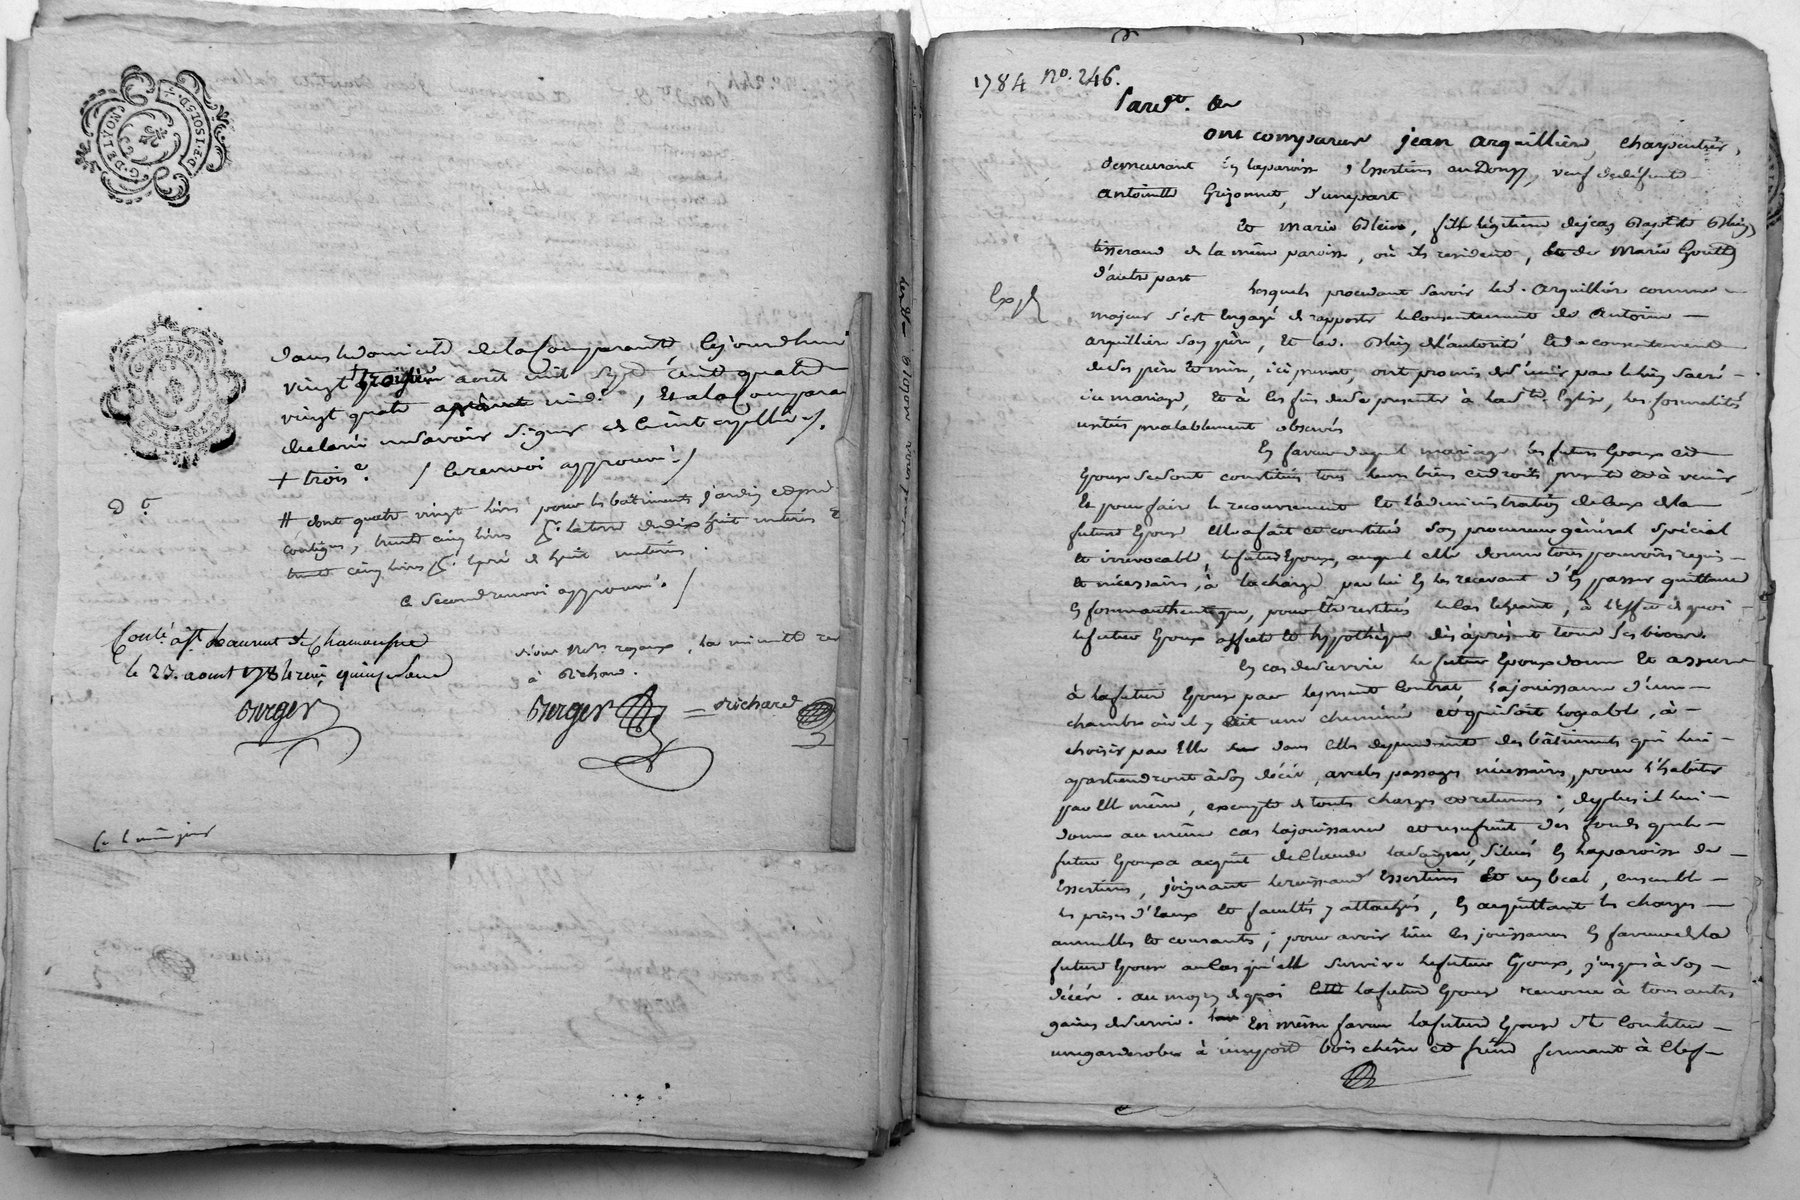 G. DE LYON
D.F. 1 SOLS D.
dans le domicile de la Comparante, le jourdhui
vingt troisiem aoüt mil sept cent quatre
vingt quatre après midi, Et a la Compara
declaré ne savoir signer de ce interpellée ./.
+ trois e / le renvoi approuvé /
D. t.
# dont quatre vingt livres pour les bâtiments jardin et pré
contigus, trente cinq livres pr. la terre de dix huit meterés Et
trente cinq livres pr. le pré de huit meterées.
ce second renvoi approuvé. /
Conlé. à St. Laurent de Chamousset
le 23. aoust 1784 reçu quinze sous
Berger
à Richard.
Berger = Richard
1784 No. 246.
Pardt. Les
ont comparus jean arquillière, charpentier,
demeurant en la paroisse d'Essertines en Donzy, veuf de defunte
antoinette Grizonnet, d'une part
Et marie Blein, fille légitime de jean Baptiste Blein
tisserand de la même paroisse, où ils resident, Et de Marie Goutte
d'autre part
Exp.
Lesquels procedant savoir led. arquillière comme
majeur s'est Engagé de rapporter le Consentement de antoine
arquillière son père, Et lad. Blein de l'autorité et du consentement
de ses père Et mère, ici présents, ont promis de s'unir par le lien sacré
du mariage, Et à ces fins de se presenter à la Ste. Eglise, les formalités
usitées prealablement observées
En faveur duquel mariage les futurs Epoux et
Epouse se sont constitués tous leurs biens et droits présents et à venir
Et pour faire le recouvrement Et l'administration de ceux de la
future Epouse Elle a fait et constitué son procureur général spécial
et irrévocable, le futur Epoux, auquel elle donne tous pouvoirs requis
et nécessaires, à la charge par lui En les recevant d'En passer quittance
En forme authentique, pour Etre restitués le Cas Echeant, à l'effet de quoi
le futur Epoux affecte Et hypothèque dès àprésent tous ses biens.
En cas de survie le futur Epoux donne Et assure
à la future Epouse par le présent Contrat, la jouissance d'une
chambre où il y ait une cheminée et qui soit logeable, à
choisir par Elle dans celles dependantes des bâtiments qui lui
apartiendront à son décès, avec les passages nécessaires, pour l'habiter
par Elle même, exempte de toutes charges et retenues ; de plus il lui
donne au même cas la jouissance et usufruit des fonds que le
futur Epoux a acquit de Claude, situés En la paroisse de
Essertines, joignant le ruisseau Essertines Et un beal, ensemble
les prises d'eaux Et facultés y attachées, En acquittant les charges
annuelles Et courantes ; pour avoir lieu les jouissances En faveur de la
future Epouse au Cas qu'elle survive le futur Epoux, jusques à son
décés. au moyen de quoi la future Epouse renonce à tous autres
gains de survie. En même faveur la future Epouse se Constitue
une garderobe à une porte bois chêne et frêne fermant à Clef